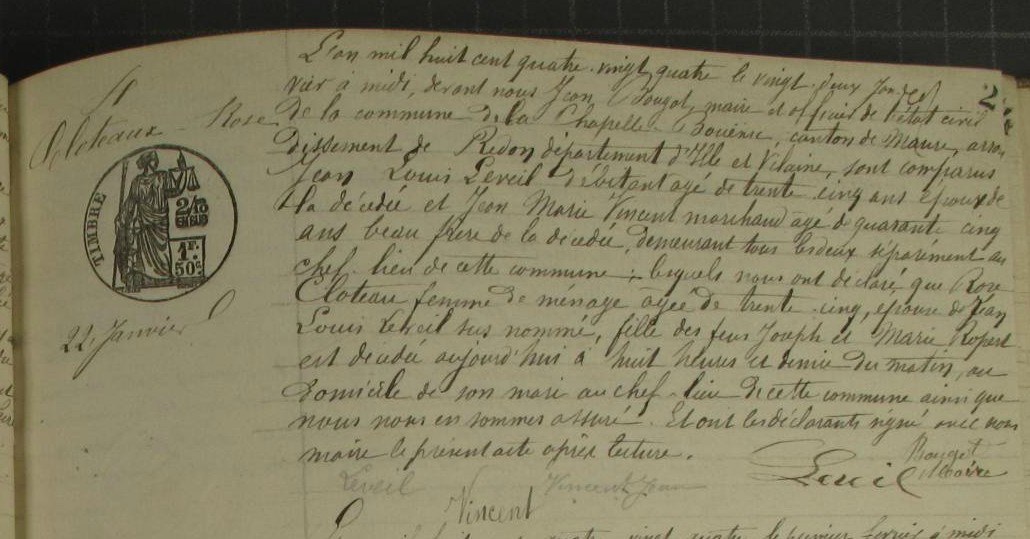 4
Cloteaux Rose
TIMBRE
2/10
EN SUS
1F.
50c.
22 Janvier
L'an mil huit cent quatre-vingt quatre le vingt-deux Jan
vier à midi, devant nous Jean Bouget, maire et officier de l'état civil
de la commune de la Chapelle-Bouëxic, canton de Maure, arron
dissement de Redon département d'Ille et Vilaine, sont comparus
Jean Louis Leveil débitant agé de trente cinq ans époux de
la décédée et Jean Marie Vincent marchand agé de quarante cinq
ans beau frère de la décédée, demeurant tous les deux séparément au
chef-lieu de cette commune ; lesquels nous ont déclaré que Rose
Cloteau femme de ménage agée de trente-cinq, épouse de Jean
Louis Leveil sus nommé, fille des feus Joseph et Marie Ropert
est décédée aujourd'hui à huit heures et demie du matin, au
domicile de son mari au chef-lieu de cette commune ainsi que
nous nous en sommes assuré. Et ont les déclarants signé avec nous
maire le présent acte après lecture.
Bouget
Maire
Leveil
Leveil Vincent Jean
Vincent